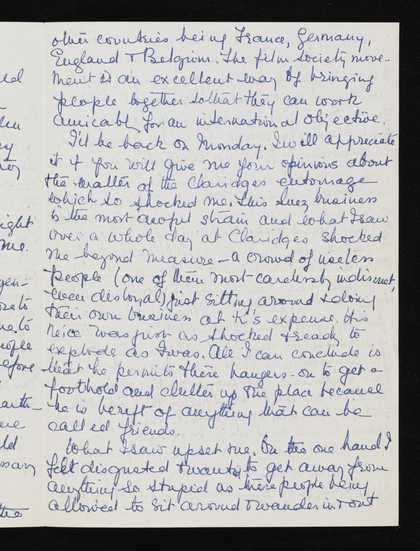 other countries being France, Germany,
England & Belgium. The film society move-
ment is an excellent way of bringing
people together so that they can work
amicably for an international objective.
I'll be back on Monday. I will appreciate
it if you will give me your opinions about
the matter of the Claridges entourage
which so shocked me. This Suez business
is the most awful strain and what I saw
over a whole day at Claridges shocked
me beyond measure — a crowd of useless
people (one of them most carelessly indiscreet,
even disloyal) just sitting around & doing
their own business at K's expense. His
neice was just as shocked & ready to
explode as I was. All I can conclude is
that he permits these hangers-on to get a
foothold and clutter up the place because
he is bereft of anything that can be
called friends.
What I saw upset me. On the one hand I
felt disgusted & wanted to get away from
anything so stupid as these people being
allowed to sit around & wander in & out
ed
ight
me.
gen-
ople
efore
ould